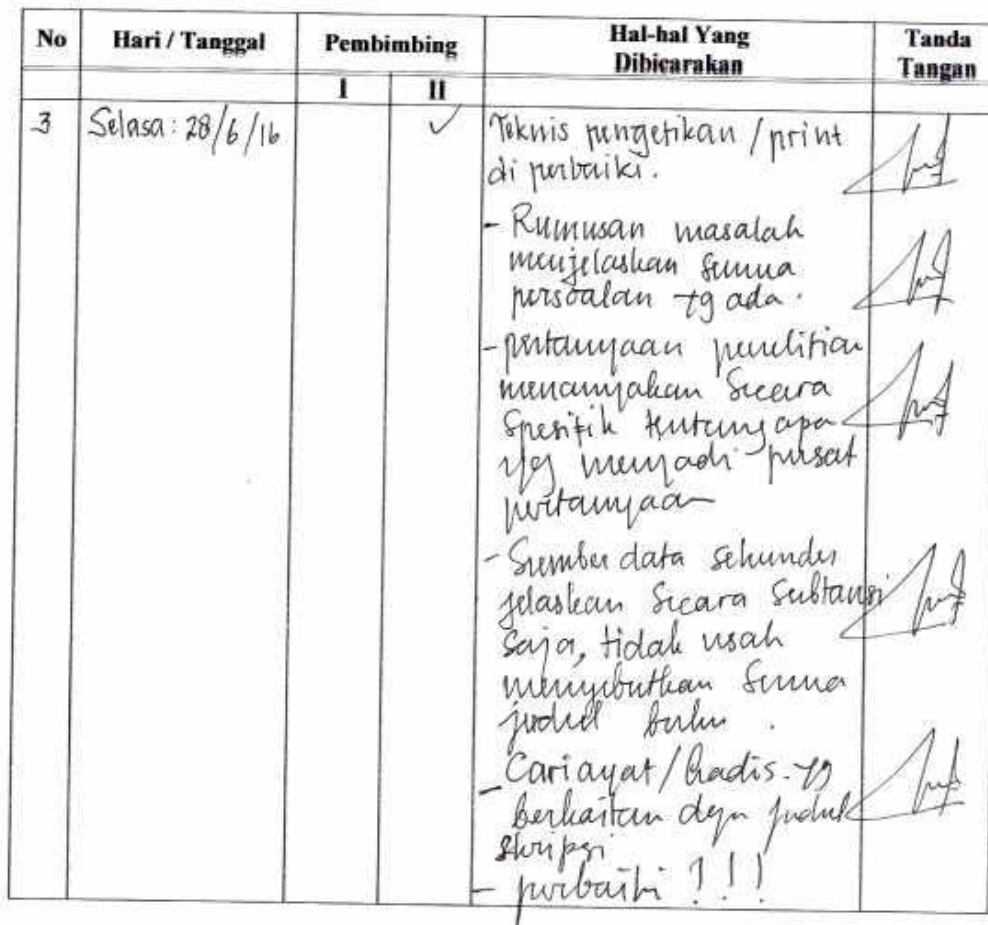 No Hari / Tanggal Pembimbing Hal-hal Yang Dibicarakan Tanda Tangan
I II
3 Selasa: 28/6/16 ✓ Teknis pengetikan / print
di perbaiki.
- Rumusan masalah
menjelaskan semua
persoalan yg ada.
- pertanyaan penelitian
menanyakan secara
spesifik tentang apa
yg menjadi pusat
pertanyaan
- Sumber data sekunder
jelaskan secara subtansi
saja, tidak usah
menyebutkan semua
judul buku.
- Cari ayat / hadis yg
berkaitan dgn judul
skripsi
- perbaiki !!!